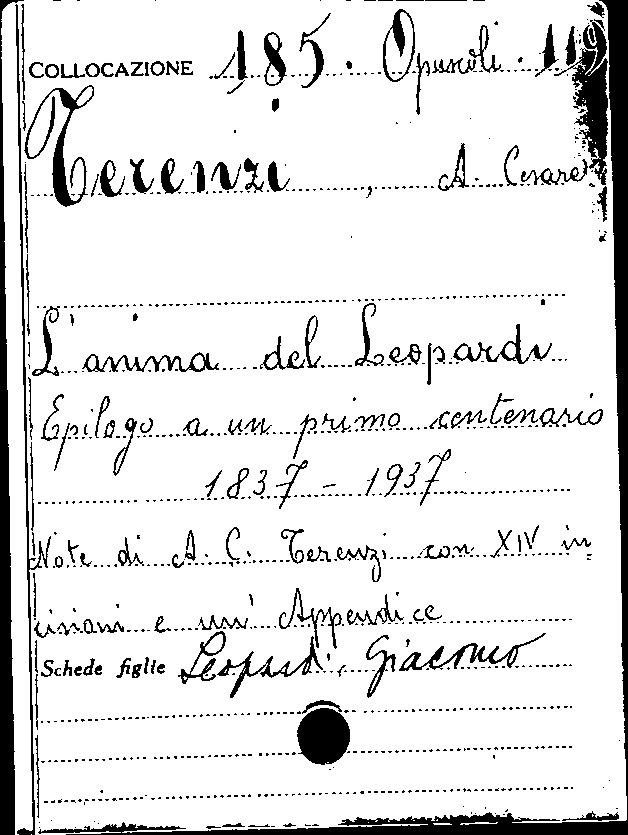 COLLOCAZIONE 185. Opuscoli. 119
Terenzi, A. Cesare
L'anima del Leopardi
Epilogo a un primo centenario
1837 - 1937
Note di A. C. Terenzi con XIV in=
cisioni e un' Appendice
Schede figlie Leopardi, Giacomo